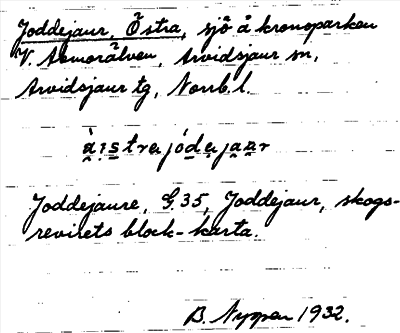 Joddejaur, Östra, sjö å kronoparken
V. Asmorälven, Arvidsjaur sn,
Arvidsjaur tg, Norrb. l.
à̯i̯s̱trɐ jódɐja̯u̯r
Joddejaure, G.35, Joddejaur, skogs-
revirets block-karta.
B. Nyman 1932.